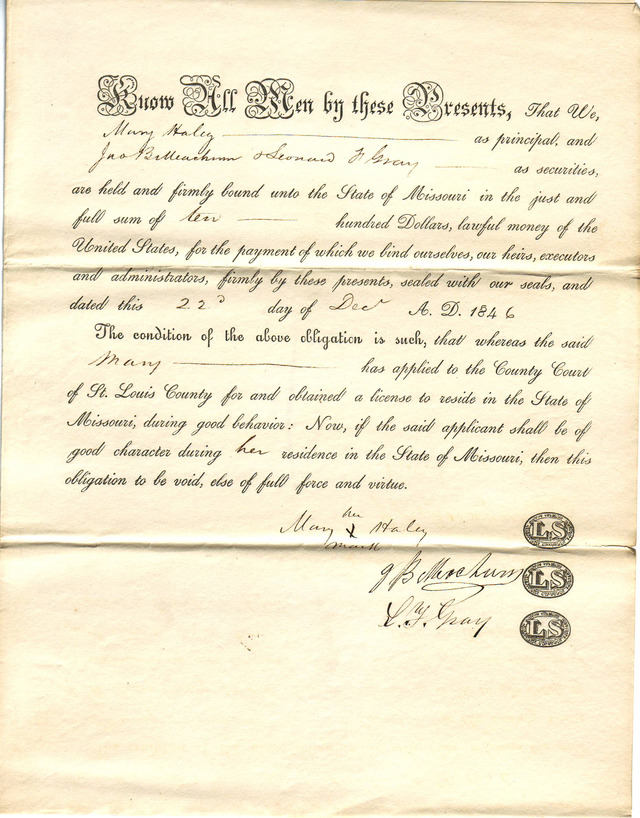 Know All Men by these Presents, That We,
Mary Haley as principal, and
Jno B Meachum & Leonard F Gray as securities,
are held and firmly bound unto the State of Missouri in the just and
full sum of ten hundred Dollars, lawful money of the
United States, for the payment of which we bind ourselves, our heirs, executors
and administrators, firmly by these presents, sealed with our seals, and
dated this 22d day of Decr A. D. 1846
The condition of the above obligation is such, that whereas the said
Mary has applied to the County Court
of St. Louis County for and obtained a license to reside in the State of
Missouri, during good behavior: Now, if the said applicant shall be of
good character during her residence in the State of Missouri, then this
obligation to be void, else of full force and virtue.
her
Mary X Haley LS
mark
J B Meachum LS
L. F. Gray LS